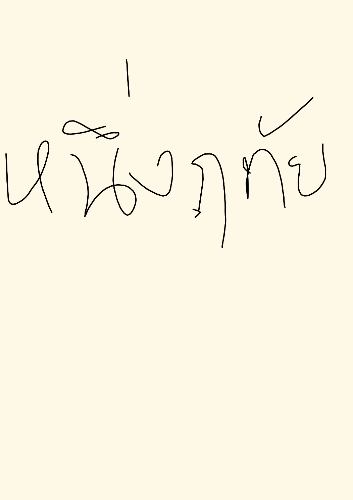 หนึ่งฤทัย